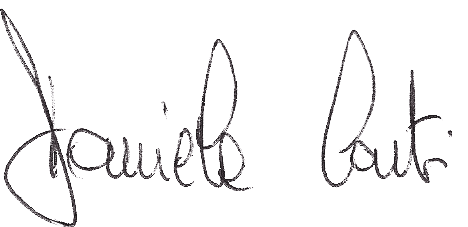 Daniele Conti